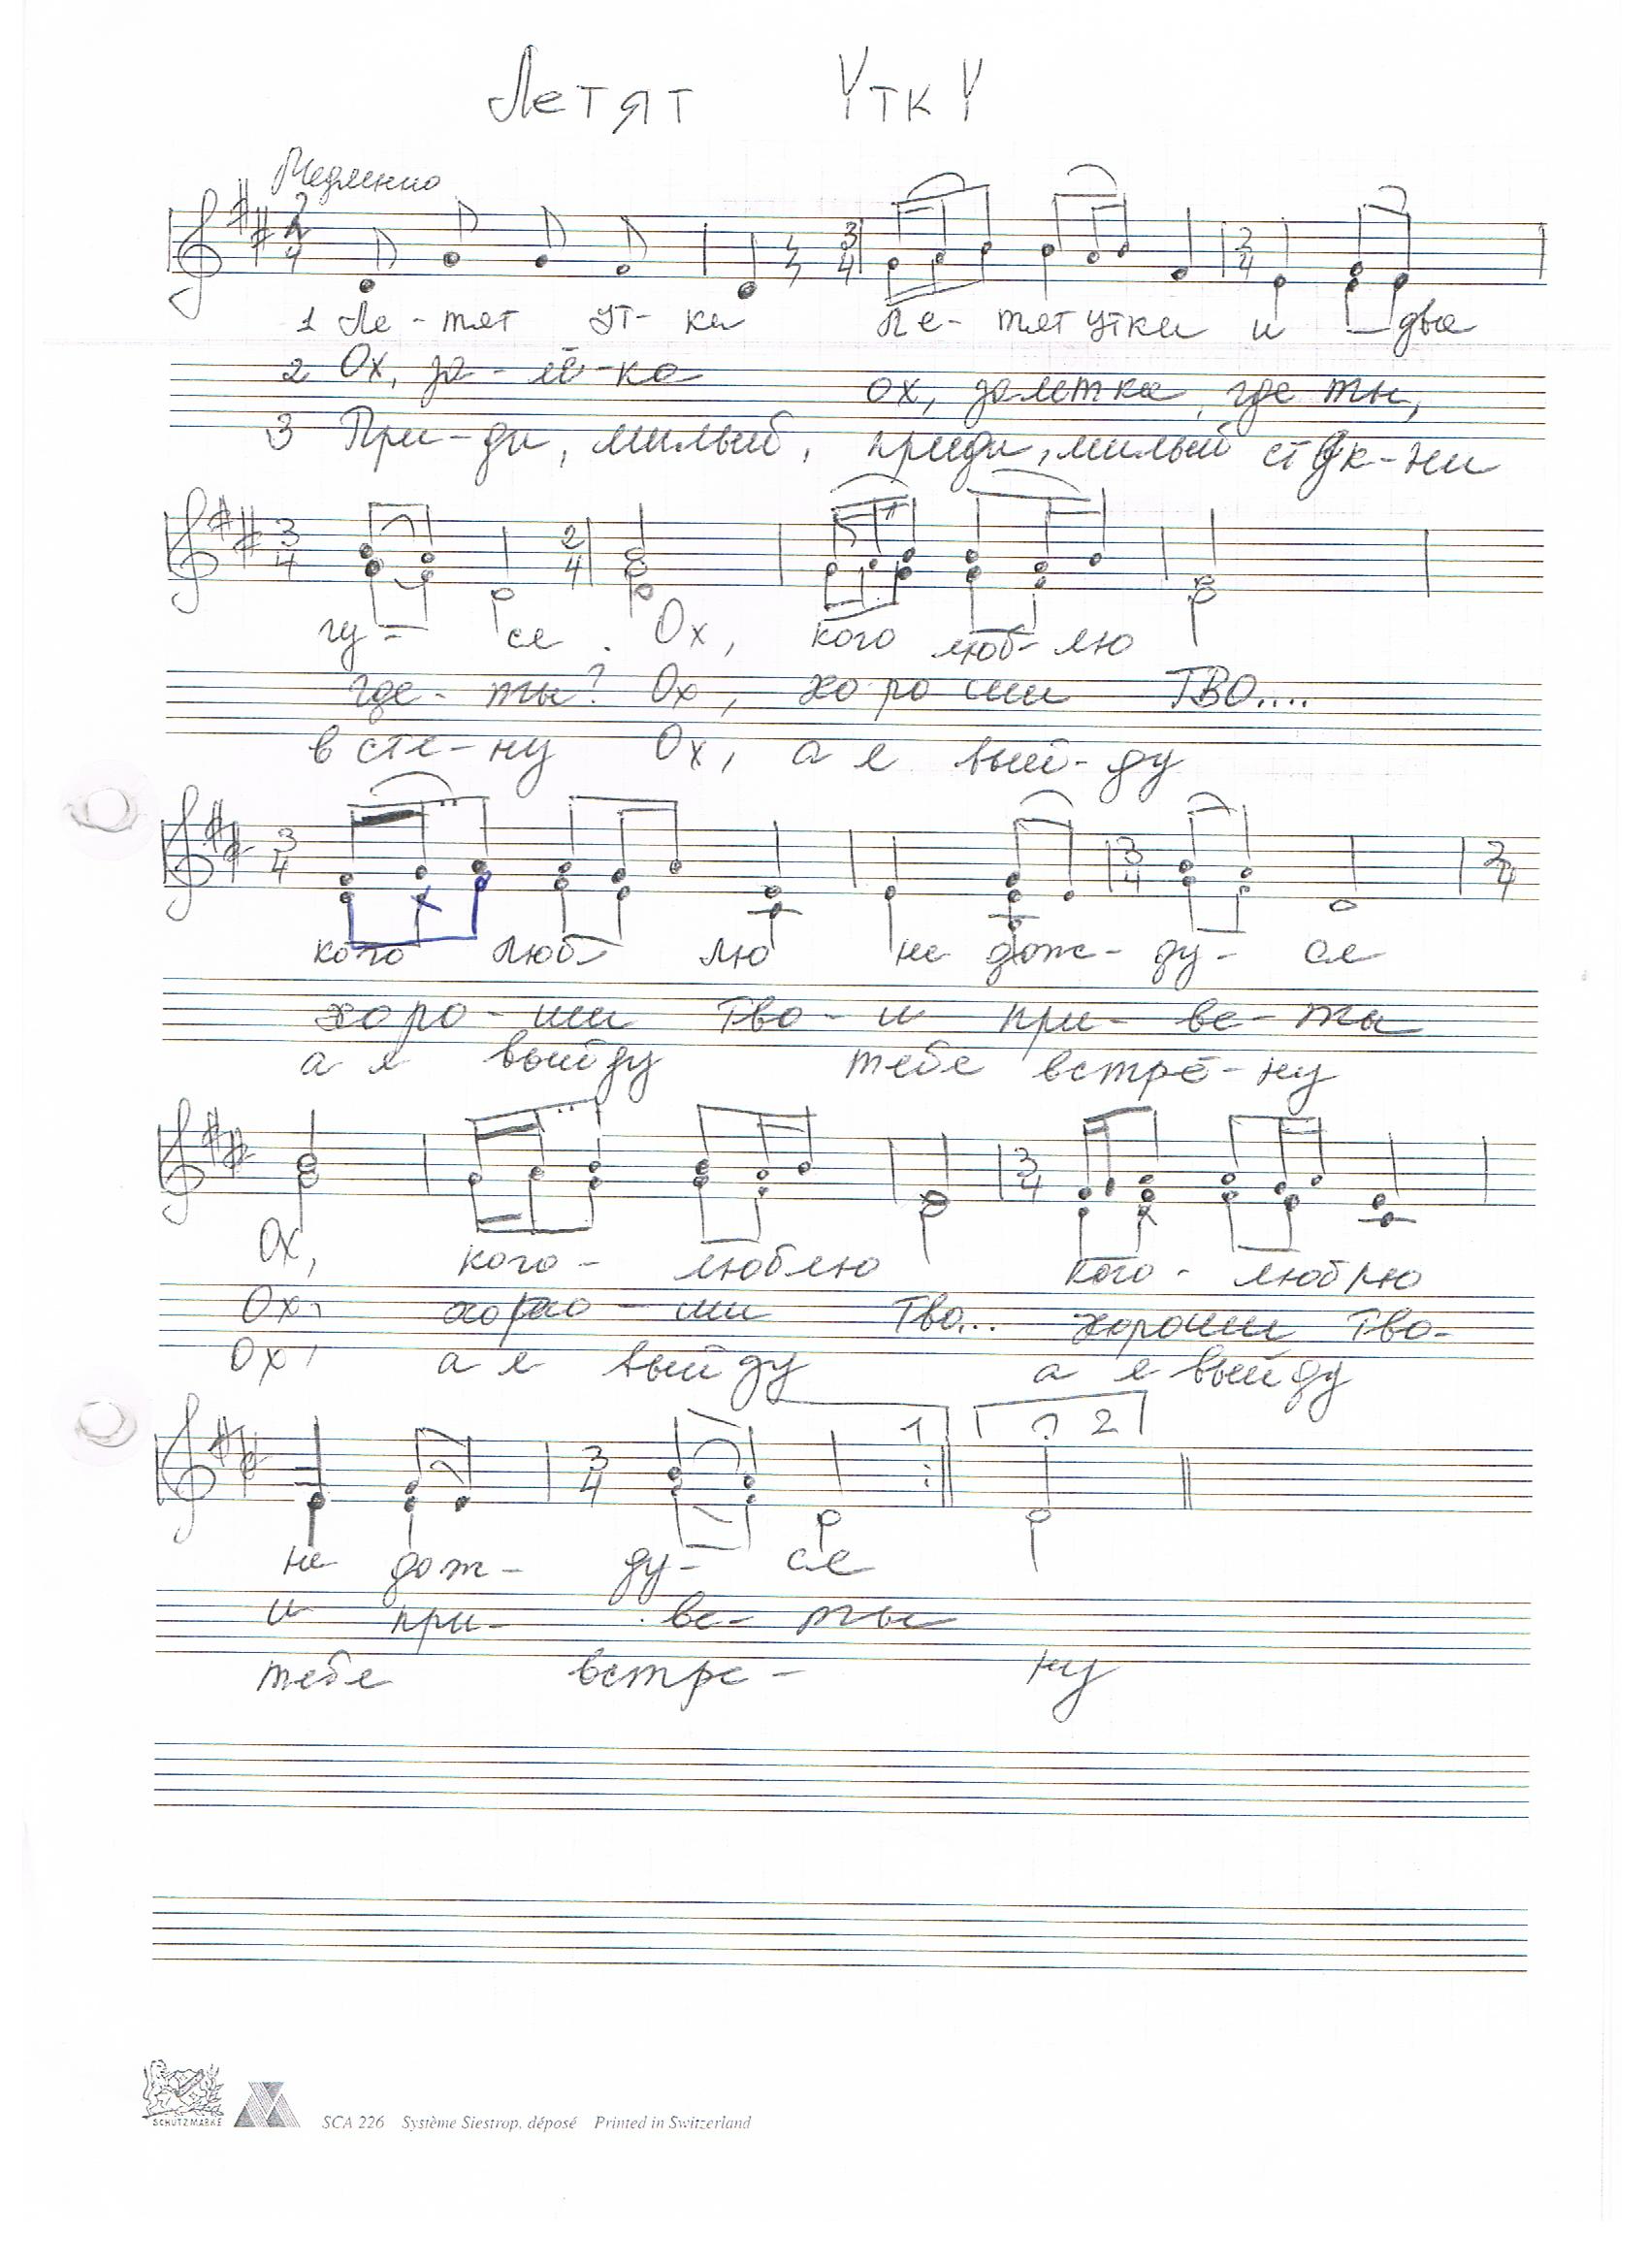 Летят Утки
Медленно
2/4 3/4 3/4
1 Ле - тят ут - ки Ле - тят утки и два
2 Ох, за - лё - ка ох, залетка, где ты,
3 При - ди, милый, приди, милый стук - ни
3/4 2/4
гу - ся. Ох, кого люб - лю
где - ты? Ох, хороши ТВО....
в сте - ну Ох, а я вый - ду
3/4 3/4 2/4
кого люб лю не дож - ду - ся
хоро - ши Тво - и при - ве - ты
а я выйду тебе встре - ну
3/4
Ох, кого - люблю кого - люблю
Ох, хоро - ши Тво... хороши Тво -
Ох, а я выйду а я выйду
3/4 1 2
не дож - ду - ся
и при - ве - ты
тебе встре - ну
SCHUTZMARKE
SCA 226 Système Siestrop. déposé Printed in Switzerland